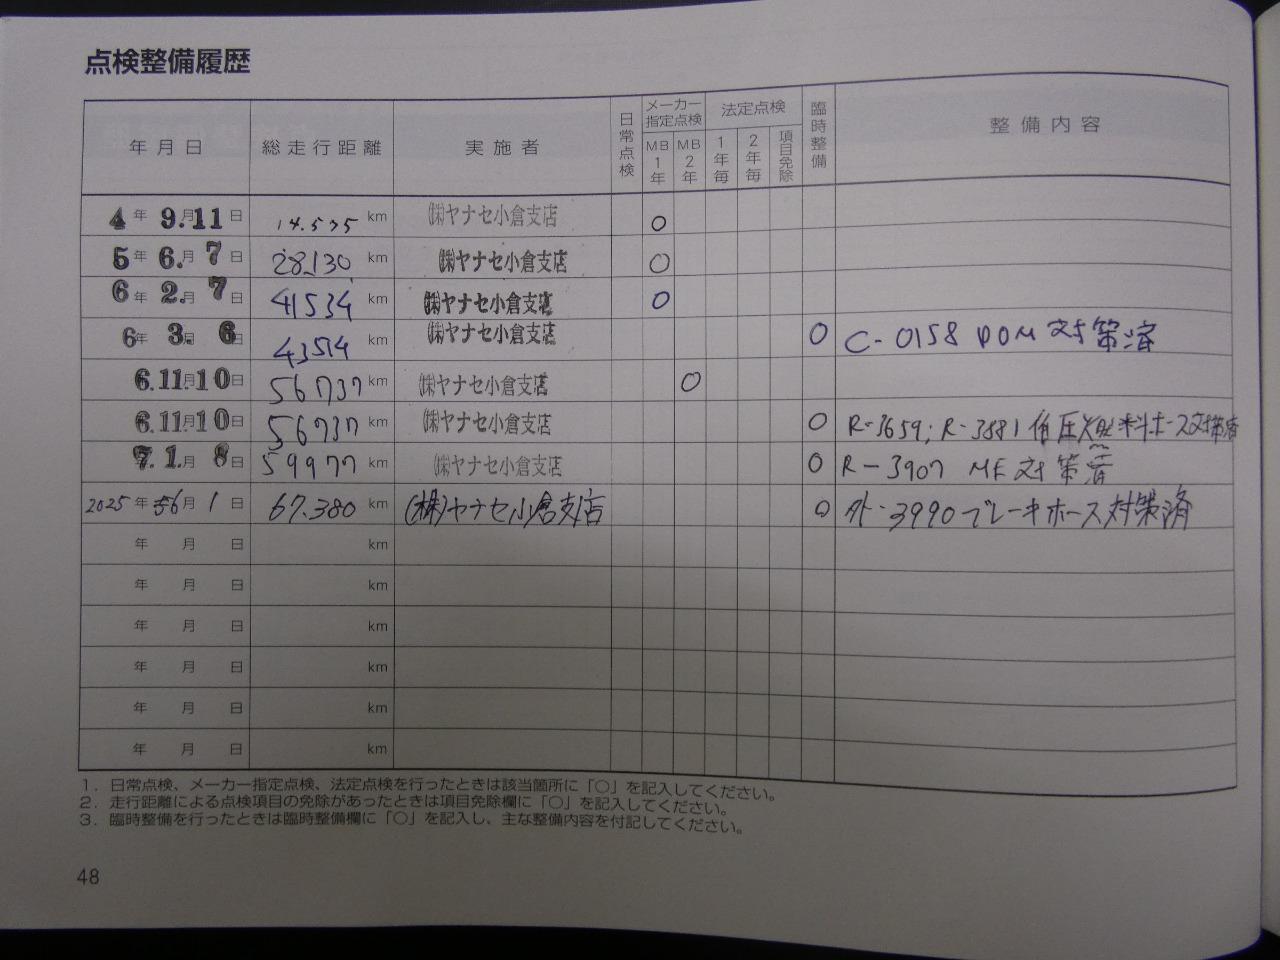 点検整備履歴
年月日 総走行距離 実施者 日常点検 メーカー指定点検 MB1年 MB2年 法定点検 1年毎 2年毎 項目免除 臨時整備 整備内容
4年 9.月11日 14.535km ㈱ヤナセ小倉支店 ○
5年 6.月 7日 28,130km ㈱ヤナセ小倉支店 ○
6年 2.月 7日 41534km ㈱ヤナセ小倉支店 ○
6年 3.月 6日 43514km ㈱ヤナセ小倉支店 ○ C-0158 DOM 対策済
6.11.月10日 56737km ㈱ヤナセ小倉支店 ○
6.11.月10日 56737km ㈱ヤナセ小倉支店 ○ R-3659; R-3881 低圧燃料ホース対策済
7.1.月 8日 59977km ㈱ヤナセ小倉支店 ○ R-3907 MF対策済
2025年 6月 1日 67.380km (株)ヤナセ小倉支店 ○ 外-3990ブレーキホース対策済
年 月 日 km
年 月 日 km
年 月 日 km
年 月 日 km
年 月 日 km
年 月 日 km
1．日常点検、メーカー指定点検、法定点検を行ったときは該当箇所に「○」を記入してください。
2．走行距離による点検項目の免除があったときは項目免除欄に「○」を記入してください。
3．臨時整備を行ったときは臨時整備欄に「○」を記入し、主な整備内容を付記してください。
48